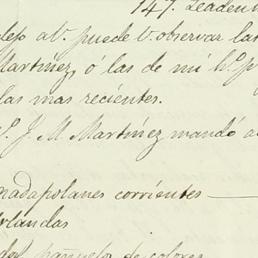 147. Leadenh
dejo al V. puede V. observar las
Martinez, ó las de mi h.º p
las mas recientes.
º. J. M. Martinez mandó a
madapolanes corrientes —
Irlandas
pañuelos de colores